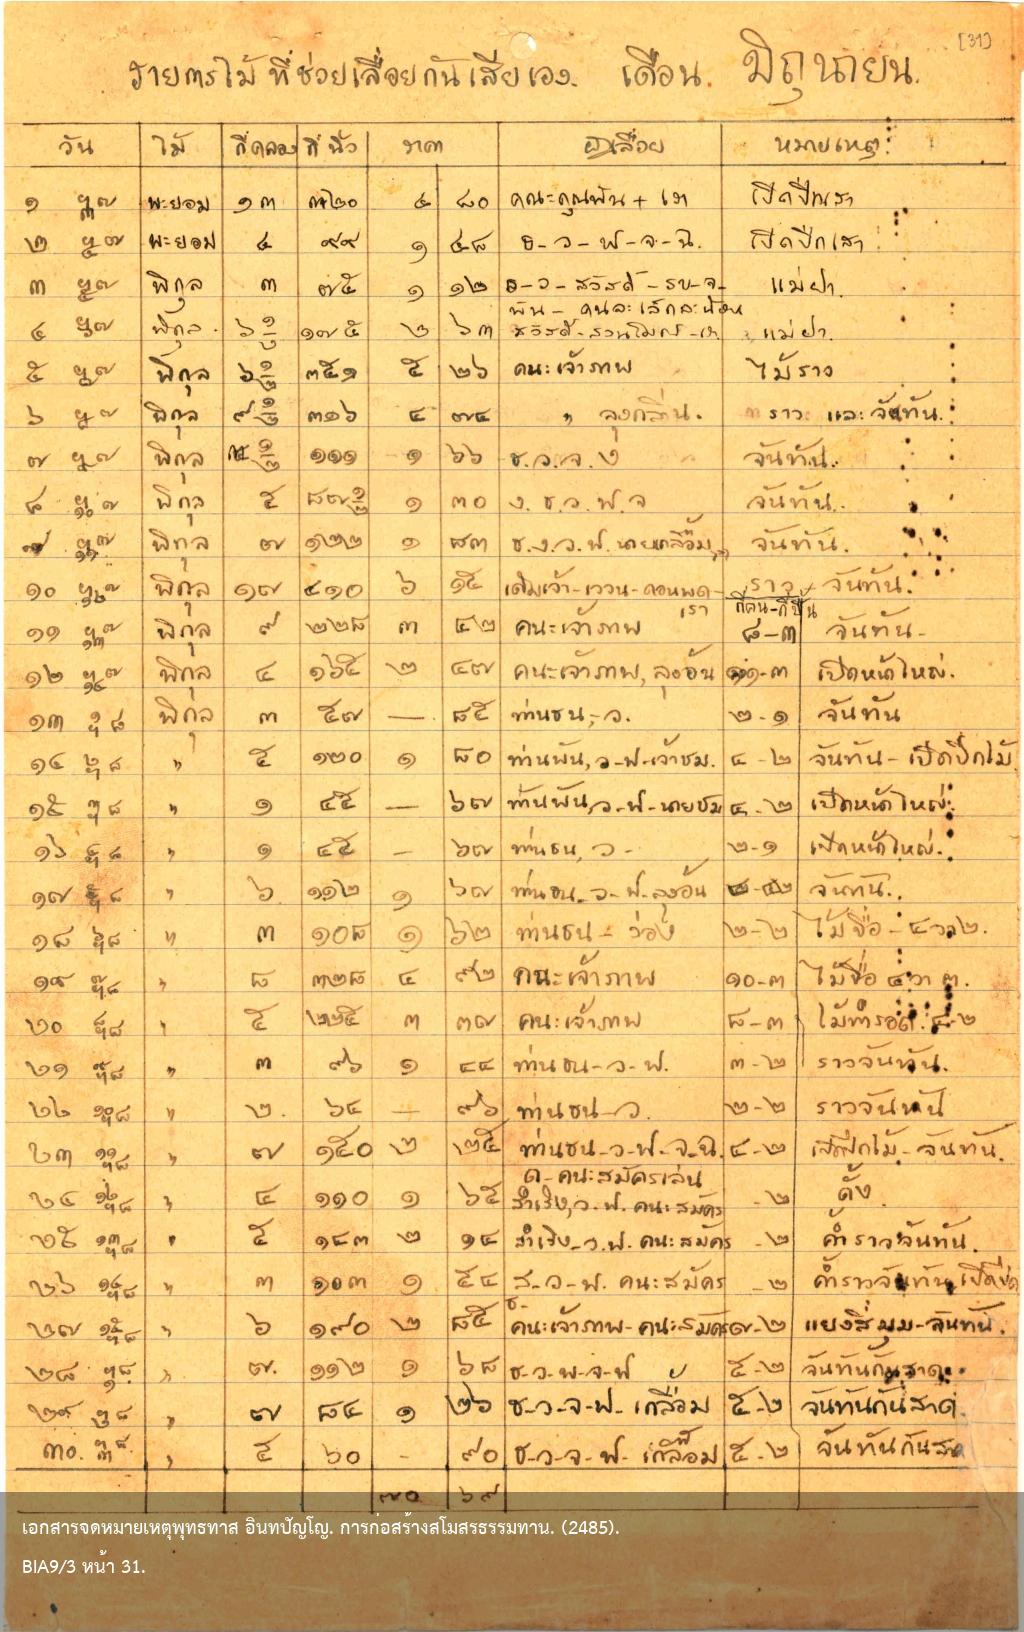 [31]
รายการไม้ที่ช่วยเลื่อยกันเสียเอง. เดือน. มิถุนายน.
วัน ไม้ กี่คลอง กี่นิ้ว ราคา ผู้เลื่อย หมายเหตุ
๑ พะยอม ๑๓ ๓๒๐ ๔ ๘๐ คณะคุณพัน + เภา เปิดปีกเสา
๒ พะยอม ๔ ๙๙ ๑ ๔๘ ธ-ว-ฟ-จ-ฉิ. เปิดปีกเสา
๓ พิกุล ๓ ๗๕ ๑ ๑๒ ธ-ว-สวัสดิ์ แม่ฝา.
๔ พิกุล. ๖ ๑/๒ ๑๗๕ ๒ ๖๓ พัน - คนละเล็กละน้อย แม่ฝา.
๕ พิกุล ๖ ๑/๒ ๓๕๑ ๕ ๒๖ คณะเจ้าภาพ ไม้ราว
๖ พิกุล ๙ ๑/๒ ๓๑๖ ๔ ๗๔ " ลุงกลิ่น. ราว และจันทัน.
๗ พิกุล ๑/๒ ๑๑๑ ๑ ๖๖ ธ.ว.จ.ง จันทัน.
๘ พิกุล ๕ ๘๗ ๑/๒ ๑ ๓๐ ง.ธ.ว.ฟ.จ จันทัน.
๙ พิกุล ๗ ๑๒๒ ๑ ๘๓ ธ.ง.ว.ฟ. นายเกลื่อม จันทัน.
๑๐ พิกุล ๑๗ ๔๑๐ ๖ ๑๕ ราว + จันทัน.
เรา กี่คน-กี่ปื้น
๑๑ พิกุล ๙ ๒๒๘ ๓ ๔๒ คณะเจ้าภาพ ๘-๓ จันทัน-
๑๒ พิกุล ๔ ๑๖๕ ๒ ๔๗ คณะเจ้าภาพ, ลุงอ้น ๑๑-๓ เปิดหน้าใหญ่.
๑๓ พิกุล ๓ ๕๗ — ๘๕ ท่านธน,-ว. ๒-๑ จันทัน
๑๔ " ๕ ๑๒๐ ๑ ๘๐ ท่านพัน, ว-ฟ-เจ้าชม. ๔-๒ จันทัน-เปิดปีกไม้
๑๕ " ๑ ๔๕ — ๖๗ ท่านพัน, ว-ฟ-นายชม ๔-๒ เปิดหน้าใหญ่.
๑๖ " ๑ ๔๕ — ๖๗ ท่านธน, ว- ๒-๑ เปิดหน้าใหญ่.
๑๗ " ๖ ๑๑๒ ๑ ๖๗ ท่านธน-ว-ฟ-ลุงอ้น จันทัน.
๑๘ " ๓ ๑๐๘ ๑ ๖๒ ท่านธน - ว่อง ๒-๒ ไม้ขื่อ - ๔ วา ๒.
๑๙ " ๘ ๓๒๘ ๔ ๙๒ คณะเจ้าภาพ ๑๐-๓ ไม้ขื่อ ๔ วา ๓.
๒๐ " ๕ ๒๒๕ ๓ ๓๗ คณะเจ้าภาพ ๘-๓ ไม้ทำรอด.
๒๑ " ๓ ๙๖ ๑ ๔๔ ท่านธน-ว-ฟ. ๓-๒ ราวจันทัน.
๒๒ " ๒. ๖๔ — ๙๖ ท่านธน-ว. ๒-๒ ราวจันทัน
๒๓ " ๗ ๑๕๐ ๒ ๒๕ ท่านธน-ว-ฟ-จ-ฉิ. ๔-๒ เปิดปีกไม้-จันทัน.
ด-คณะสมัครเล่น
๒๔ " ๔ ๑๑๐ ๑ ๖๕ สำเริง, ว.ฟ. คณะสมัคร -๒ ดั้ง
๒๕ " ๕ ๑๔๓ ๒ ๑๔ สำเริง-ว.ฟ. คณะสมัคร -๒ ค้ำราวจันทัน.
๒๖ " ๓ ๑๐๓ ๑ ๕๔ ส-ว-ฟ. คณะสมัคร -๒ ค้ำราวจันทัน เปิดปีก
๒๗ " ๖ ๑๙๐ ๒ ๘๕ คณะเจ้าภาพ-คณะสมัคร ๗-๒ แยงสี่มุม-จันทัน.
๒๘ " ๗. ๑๑๒ ๑ ๖๘ ธ-ว-พ-จ-ฟ ๕-๒ จันทันกันสาด
๒๙ " ๗ ๘๔ ๑ ๒๖ ธ-ว-จ-ฟ-เกลื่อม ๕-๒ จันทันกันสาด.
๓๐. " ๕ ๖๐ - ๙๐ ธ-ว-จ-ฟ-เกลื่อม ๕-๒ จันทันกันสาด
๗๐ ๖๙
เอกสารจดหมายเหตุพุทธทาส อินทปัญโญ. การก่อสร้างสโมสรธรรมทาน. (2485).
BIA9/3 หน้า 31.